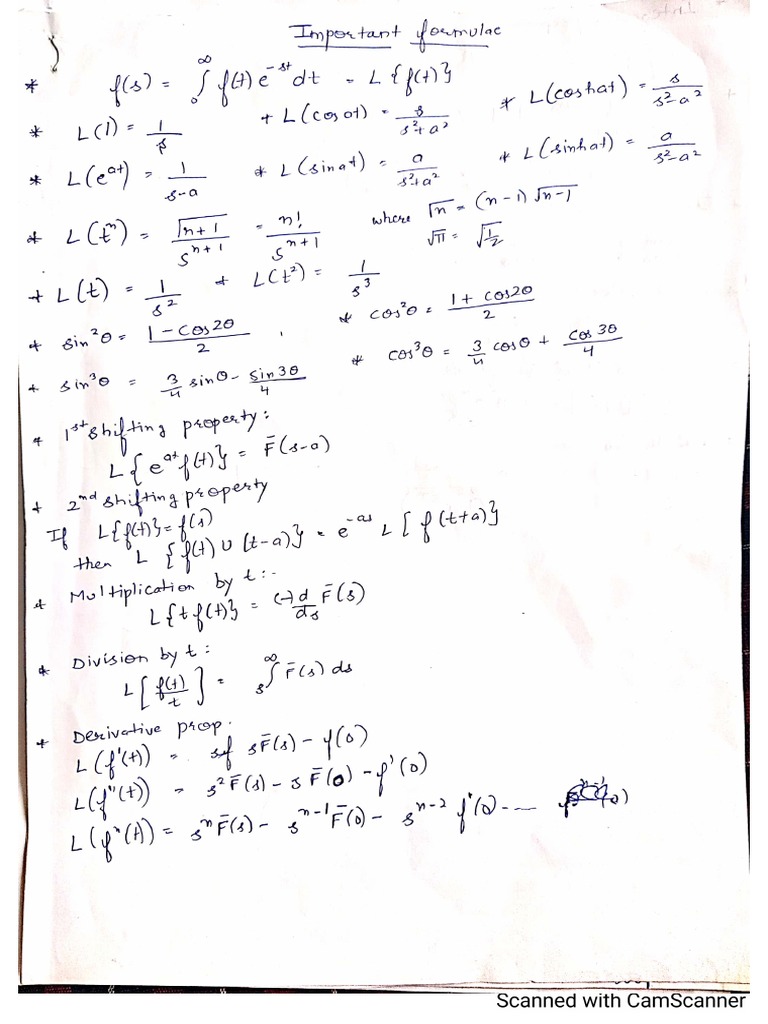 Important formulae
* f(s) = ∫₀^∞ f(t) e^{-st} dt = L{f(t)}
* L(1) = 1/s + L(cos at) = s/(s²+a²) * L(cosh at) = s/(s²-a²)
* L(e^{at}) = 1/(s-a) * L(sin at) = a/(s²+a²) * L(sinh at) = a/(s²-a²)
* L(tⁿ) = √(n+1)/s^{n+1} = n!/s^{n+1} where √n = (n-1) √n-1
√π = √(1/2)
+ L(t) = 1/s² + L(t²) = 1/s³
* sin²θ = (1-cos2θ)/2 , * cos²θ = (1+cos2θ)/2
* sin³θ = 3/4 sinθ - sin3θ/4 * cos³θ = 3/4 cosθ + cos3θ/4
* 1st shifting property:
L{e^{at} f(t)} = F̄(s-a)
+ 2nd shifting property
If L{f(t)} = f(s)
then L {f(t) U (t-a)} = e^{-as} L[f(t+a)}
* Multiplication by t:-
L{t f(t)} = (-) d/ds F̄(s)
* Division by t:
L[f(t)/t] = ∫ₛ^∞ F̄(s) ds
* Derivative prop.
L(f'(t)) = sf sF̄(s) - f(0)
L(f''(t)) = s² F̄(s) - s F̄(0) - f'(0)
L(fⁿ(t)) = sⁿ F̄(s) - s^{n-1} F̄(0) - s^{n-2} f'(0) - ---- (0)
Scanned with CamScanner